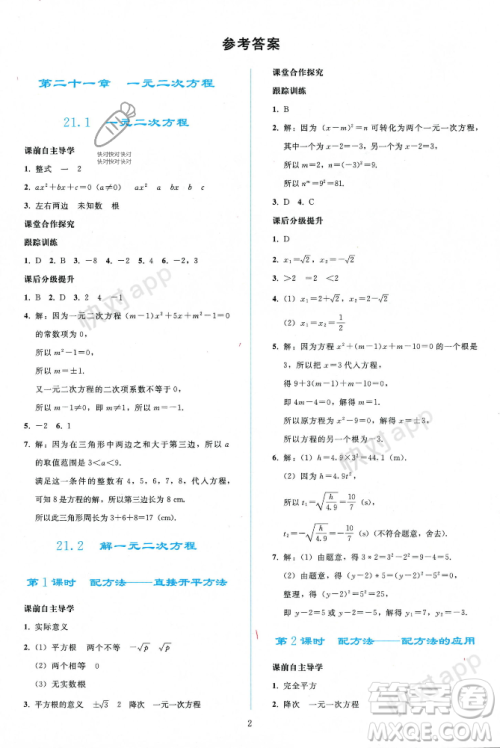 参考答案
第二十一章　一元二次方程
21.1　一元二次方程
快对快对快对
快对快对快对
课前自主导学
1. 整式　一　2
2. ax²+bx+c=0 (a≠0)　ax²　ax²　bx　a　b　c
3. 左右两边　未知数　根
课堂合作探究
跟踪训练
1. D　2. B　3. －8　4. －2　5. 4　6. －2
课后分级提升
1. B　2. D　3. －1
4. 解：因为一元二次方程 (m－1)x²+5x+m²－1=0
的常数项为 0,
所以 m²－1=0,
所以 m=±1.
又一元二次方程的二次项系数不等于 0,
所以 m=－1.
5. －2　6. 1
7. 解：因为在三角形中两边之和大于第三边，所以 a
的取值范围是 3＜a＜9.
满足这一范围且为方程的根的整数是 8,
所以第三边的长为 8 cm,
所以该三角形的周长为 3+6+8=17 (cm).
21.2　解一元二次方程
第1课时　配方法——直接开平方法
课前自主导学
1. 实际意义
2. (1) 平方根　两个不等　－√p　√p
(2) 两个相等　0
(3) 无实数根
3. 平方根的意义　±√3　2　降次　一元一次方程
课堂合作探究
跟踪训练
1. B
2. 解：因为 (x－m)²=n 可转化为两个一元一次方程，
其中一个为 x－2=－3, 即 x－5=－3,
所以
所以 n⁴=9²=81.
3. D　4. C
课后分级提升
1. D
2. x₁=√2, x₂=－√2
3. ＞2　=2
4. (1) x₁=2+√2, x₂=2－√2
(2) x₁=
5. 解：因为方程 x²+(m－1)x+m－10=0 的一个根是
3, 所以把 x=3 代入方程，
得 9+3(m－1)+m－10=0,
即 4m－4=0, 解得 m=1.
所以原方程为 x²－9=0,
解得 x=±3. 所以方程的另一个根为－3.
6. 解：(1) h=4.9×3²=44.1 (m).
(2) 因为 h=4.9t²,
所以 t₁=√(h/4.9)=10/7 (s),
t₂=－√(h/4.9)=－10/7 (s) (不符合题意，舍去).
7. 解：(1) 由题意，得 3*2=3²－2²=5.
(2) 由题意，得
所以
即
第2课时　配方法——配方法的应用
课前自主导学
1. 完全平方
2. (1) 降次　一元一次方程
2
快对app
快对app
快对app
答案圈
MXQE.COM